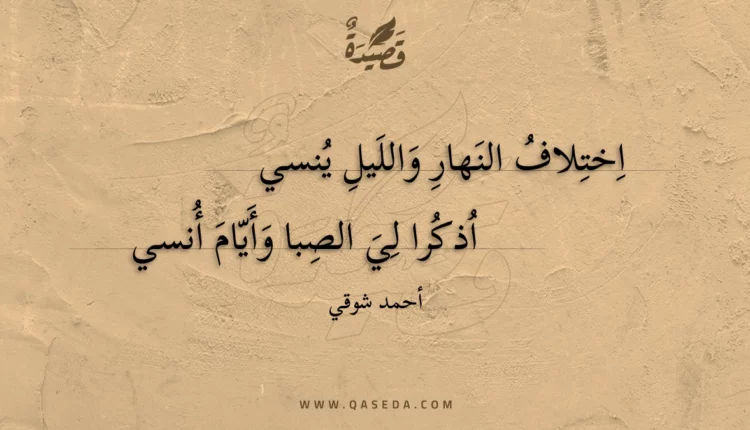 قَصِيدَةٌ
اِختِلافُ النَهارِ وَاللَيلِ يُنسي
اُذكُرا لِيَ الصِبا وَأَيّامَ أُنسي
أحمد شوقي
WWW.QASEDA.COM